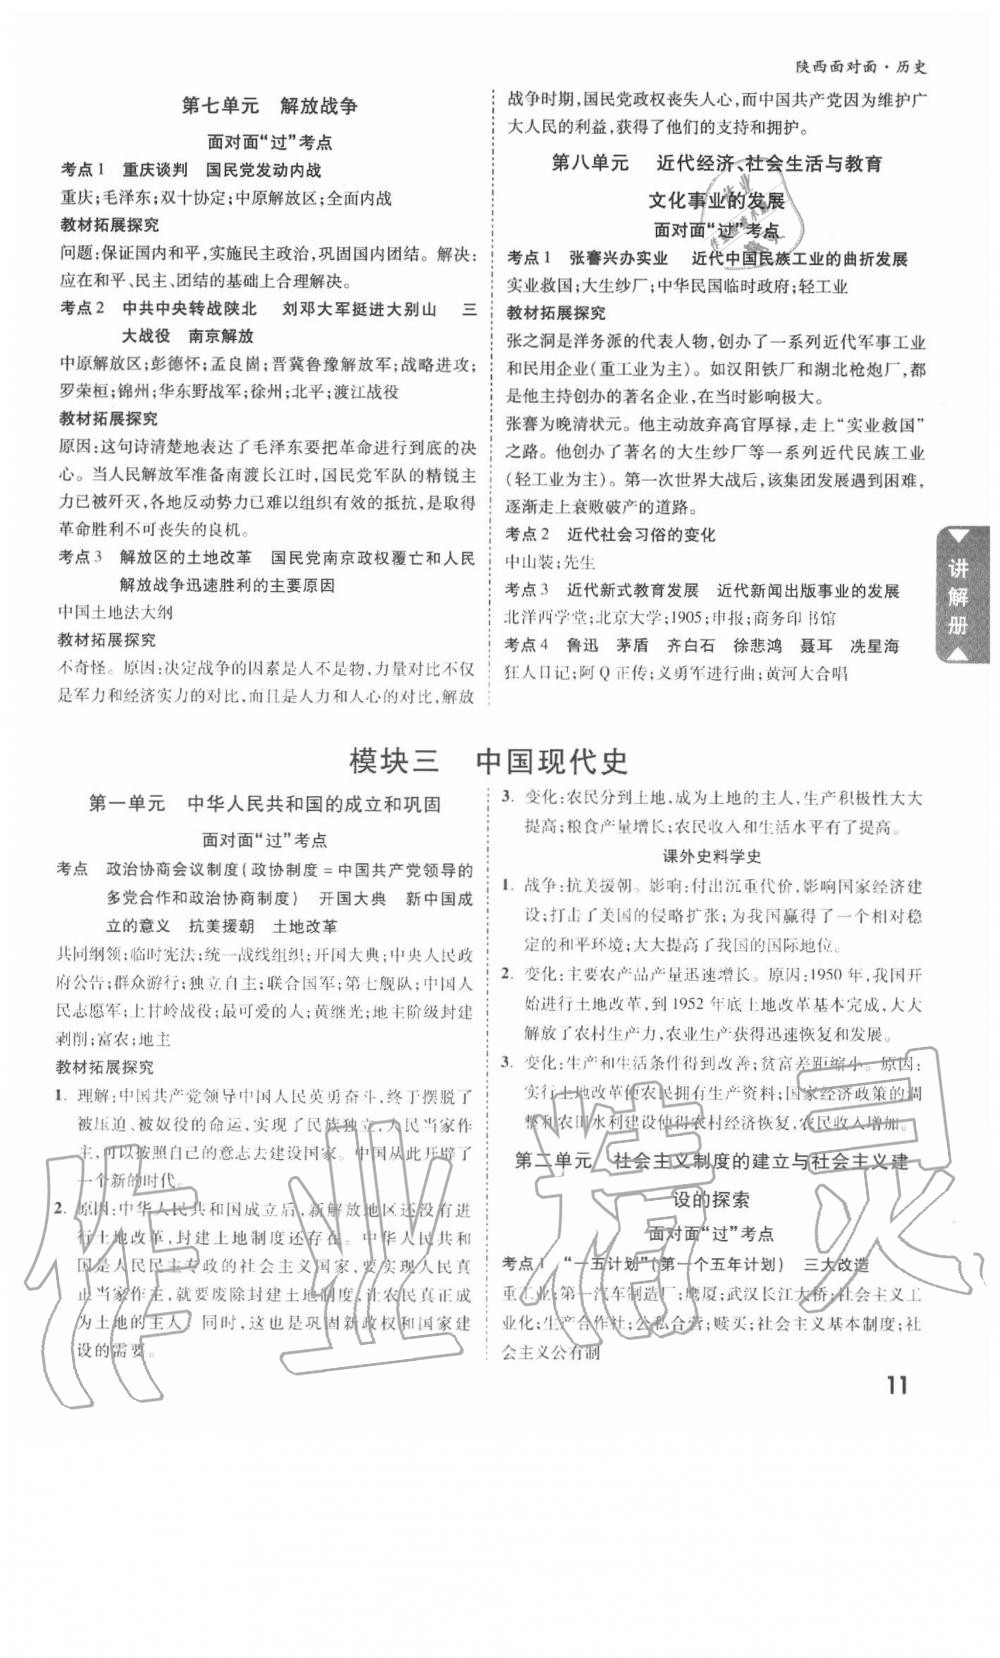 陕西面对面·历史
第七单元 解放战争
面对面“过”考点
考点1 重庆谈判 国民党发动内战
重庆;毛泽东;双十协定;中原解放区;全面内战
教材拓展探究
问题:保证国内和平,实施民主政治,巩固国内团结。解决:
应在和平、民主、团结的基础上合理解决。
考点2 中共中央转战陕北 刘邓大军挺进大别山 三
大战役 南京解放
中原解放区;彭德怀;孟良崮;晋冀鲁豫解放军;战略进攻;
罗荣桓;锦州;华东野战军;徐州;北平;渡江战役
教材拓展探究
原因:这句诗清楚地表达了毛泽东要把革命进行到底的决
心。当人民解放军准备南渡长江时,国民党军队的精锐主
力已被歼灭,各地反动势力已难以组织有效的抵抗,是取得
革命胜利不可丧失的良机。
考点3 解放区的土地改革 国民党南京政权覆亡和人民
解放战争迅速胜利的主要原因
中国土地法大纲
教材拓展探究
不奇怪。原因:决定战争的因素是人不是物,力量对比不仅
是军力和经济实力的对比,而且是人力和人心的对比,解放
战争时期,国民党政权丧失人心,而中国共产党因为维护广
大人民的利益,获得了他们的支持和拥护。
第八单元 近代经济、社会生活与教育
文化事业的发展
面对面“过”考点
考点1 张謇兴办实业 近代中国民族工业的曲折发展
实业救国;大生纱厂;中华民国临时政府;轻工业
教材拓展探究
张之洞是洋务派的代表人物,创办了一系列近代军事工业
和民用企业(重工业为主)。如汉阳铁厂和湖北枪炮厂,都
是他主持创办的著名企业,在当时影响极大。
张謇为晚清状元。他主动放弃高官厚禄,走上“实业救国”
之路。他创办了著名的大生纱厂等一系列近代民族工业
(轻工业为主)。第一次世界大战后,该集团发展遇到困难,
逐渐走上衰败破产的道路。
考点2 近代社会习俗的变化
中山装;先生
考点3 近代新式教育发展 近代新闻出版事业的发展
北洋西学堂;北京大学;1905;申报;商务印书馆
考点4 鲁迅 茅盾 齐白石 徐悲鸿 聂耳 冼星海
狂人日记;阿Q正传;义勇军进行曲;黄河大合唱
讲解册
模块三 中国现代史
第一单元 中华人民共和国的成立和巩固
面对面“过”考点
考点 政治协商会议制度(政协制度=中国共产党领导的
多党合作和政治协商制度) 开国大典 新中国成
立的意义 抗美援朝 土地改革
共同纲领;临时宪法;统一战线组织;开国大典;中央人民政
府公告;群众游行;独立自主;联合国军;第七舰队;中国人
民志愿军;上甘岭战役;最可爱的人;黄继光;地主阶级封建
剥削;富农;地主
教材拓展探究
1. 理解:中国共产党领导中国人民英勇奋斗,终于改变了
被压迫、被奴役的命运,实现了民族独立,人民当家作
主,可以按照自己的意志去建设国家。中国从此开辟了
一个新的时代。
2. 原因:中华人民共和国成立后,新解放地区还没有进
行土地改革,封建土地制度还存在。中华人民共和
国是人民民主专政的社会主义国家,要实现人民真
正当家作主,就要废除封建土地制度,让农民真正成
为土地的主人。同时,这也是巩固新政权和国家建
设的需要。
3. 变化:农民分到土地,成为土地的主人,生产积极性大大
提高;粮食产量增长;农民收入和生活水平有了提高。
课外史料学史
1. 战争:抗美援朝。影响:付出沉重代价,影响国家经济建
设;打击了美国的侵略扩张;为我国赢得了一个相对稳
定的和平环境;大大提高了我国的国际地位。
2. 变化:主要农产品产量迅速增长。原因:1950年,我国开
始进行土地改革,到1952年底土地改革基本完成,大大
解放了农村生产力,农业生产获得迅速恢复和发展。
3. 变化:生产和生活条件得到改善;贫富差距缩小。原因:
实行土地改革使农民拥有生产资料;国家经济政策的调
整和农田水利建设使得农村经济恢复,农民收入增加。
第二单元 社会主义制度的建立与社会主义建
设的探索
面对面“过”考点
考点1 “一五计划”(第一个五年计划) 三大改造
重工业;第一汽车制造厂;鹰厦;武汉长江大桥;社会主义工
业化;生产合作社;公私合营;赎买;社会主义基本制度;社
会主义公有制
11
作业精灵